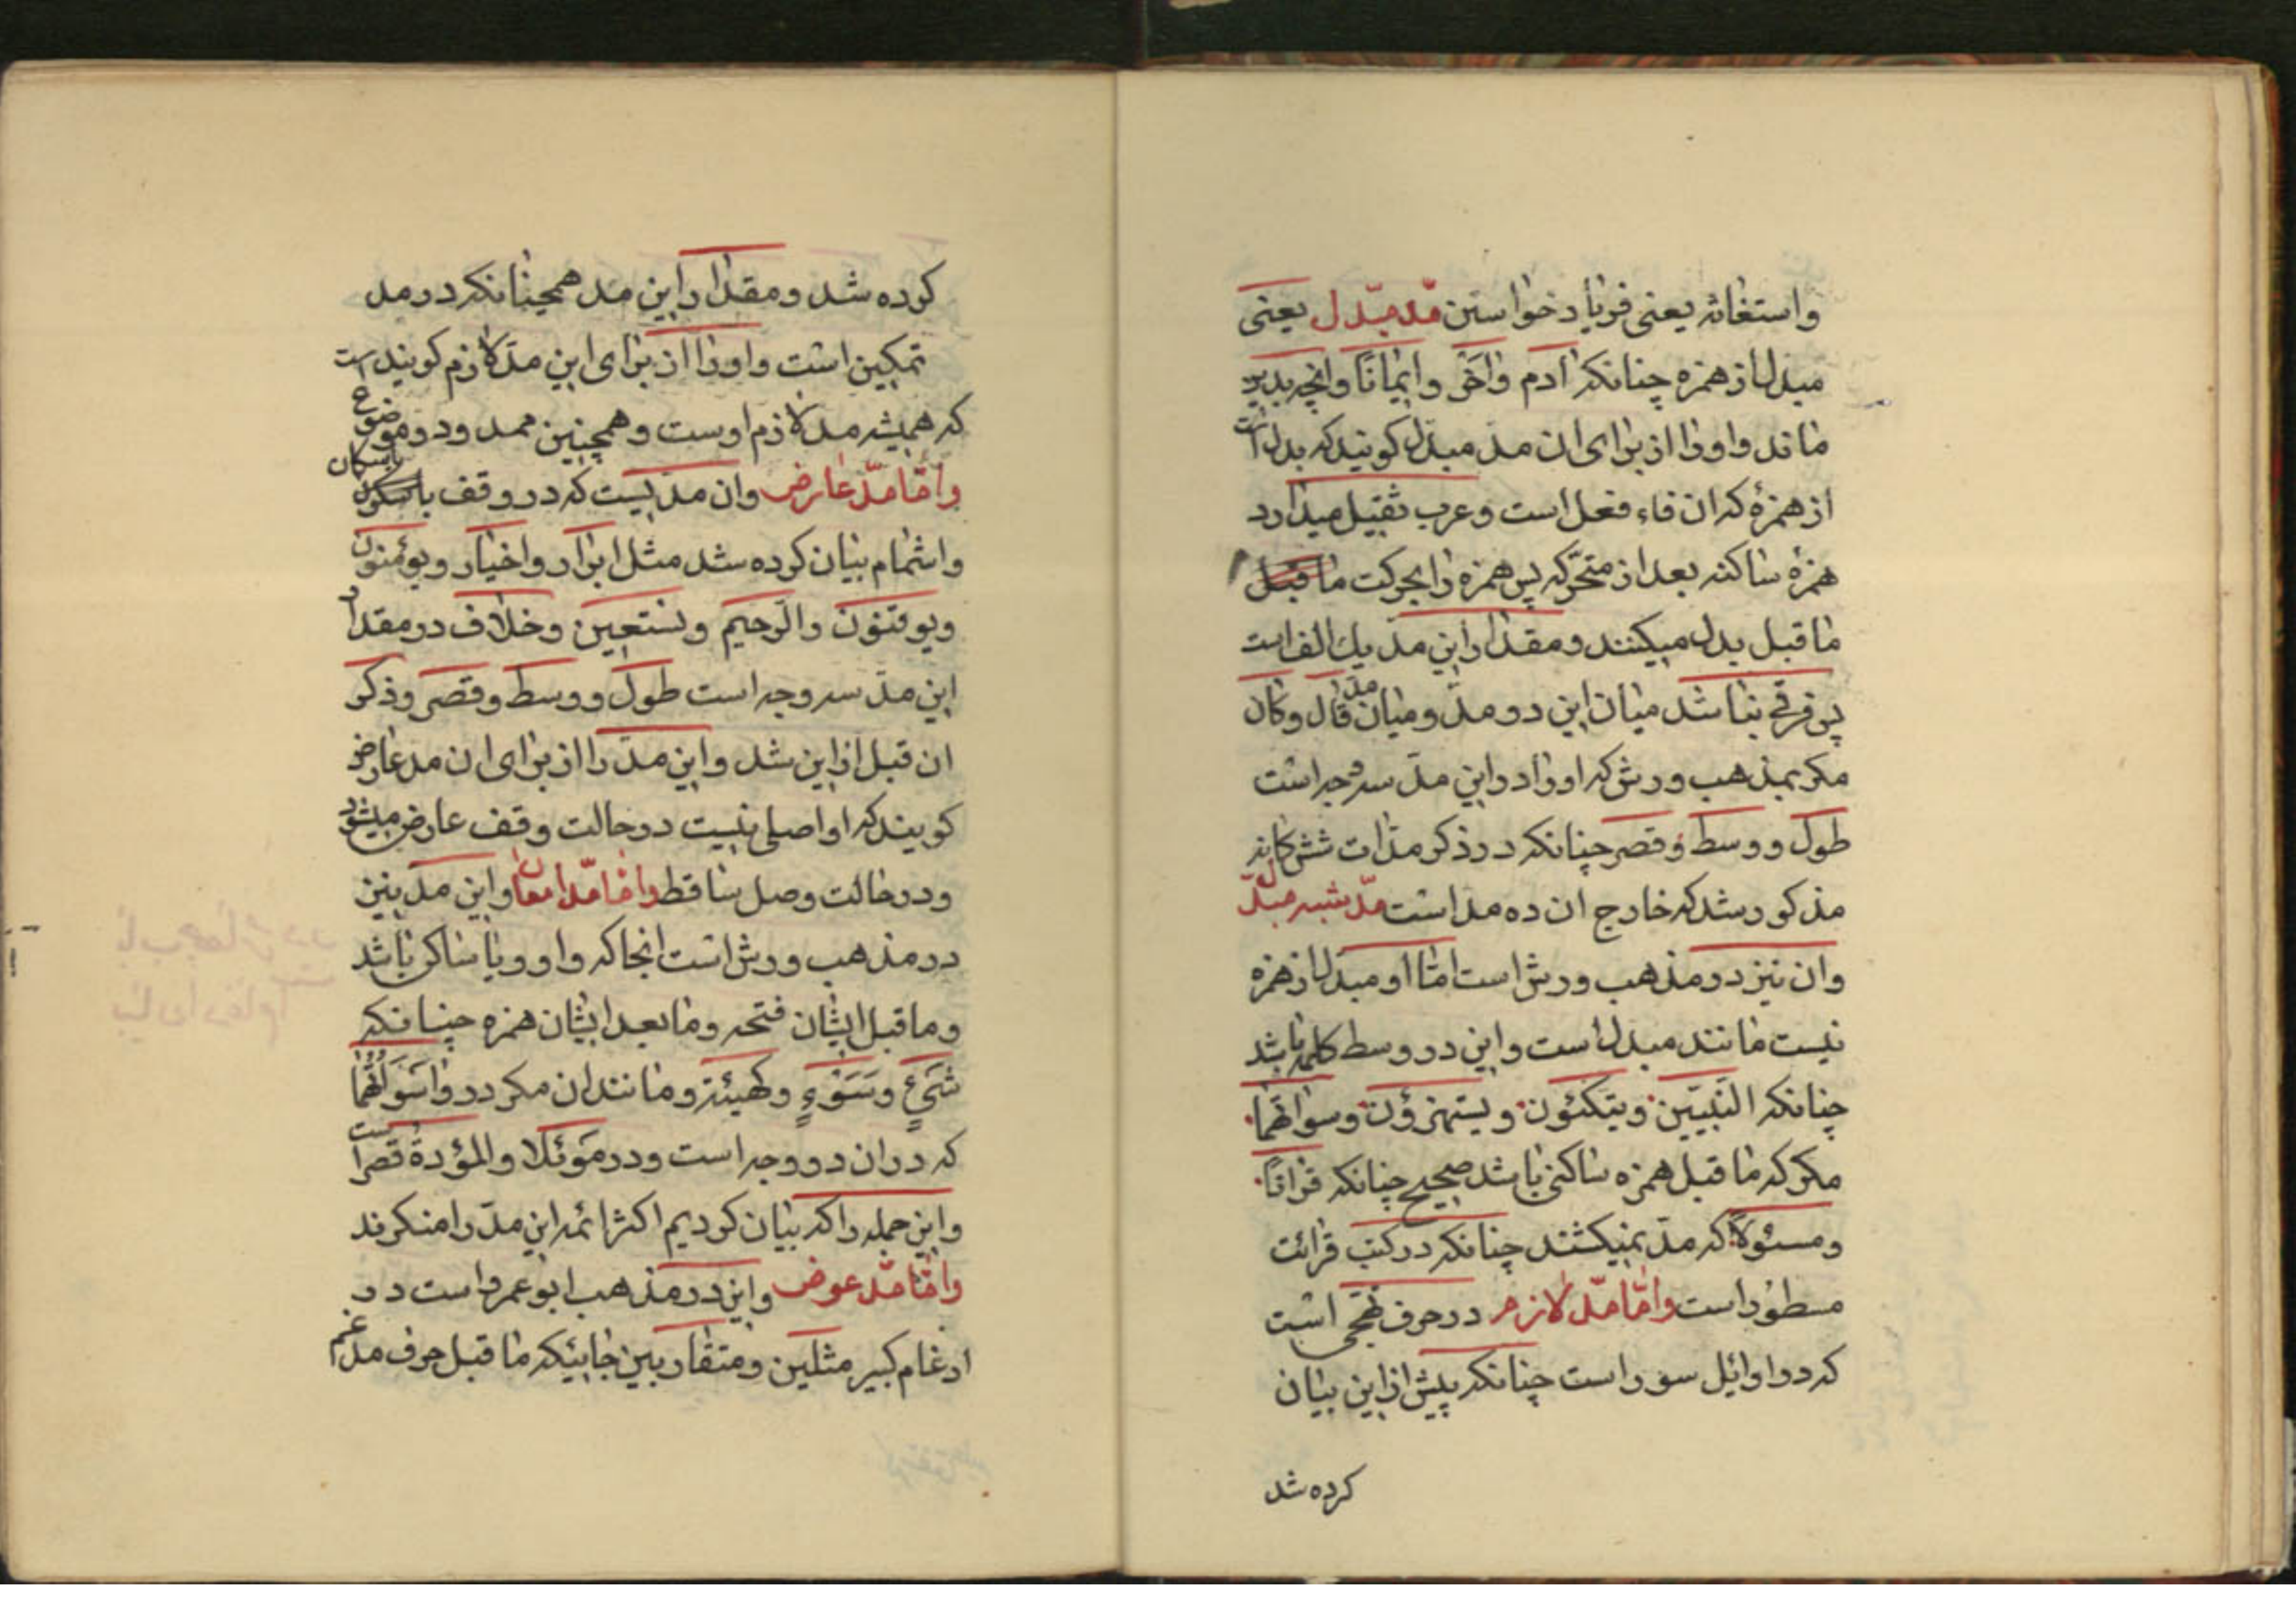 واستغاثه یعنی فریاد خواستن مدّ مبدّل یعنی
مبدل از همزه چنانکه اادم واخی وایمانا وانچه بدین
ماند واورا از برای ان مد مبدل کویند که بدل است
از همزهٔ که ان فاء فعل است وعرب ثقیل میدارد
همزهٔ ساکنه بعد از متحرّکه پس همزه را بحرکت ما قبل
ما قبل بدل میکنند ومقدار این مدّ یك الف است
پس فرقی نباشد میان این دو مدّ ومیان مدّ قال وکان
مکر بمذهب ورش که اورا در این مدّ سه وجه است
طول ووسط وقصر چنانکه در ذکر مدّات شش کانه
مذکور شد که خارج ان ده مد است مدّ شبه مبدّل
وان نیز در مذهب ورش است امّا او مبدل از همزه
نیست مانند مبدل است واین در وسط کلمه باشد
چنانکه النّبیّین ویتکئون ویستهزؤن وسواتهما
مکر که ما قبل همزه ساکنی باشد صحیح چنانکه قرانًا
ومسئولًا که مدّ نمیکشند چنانکه در کتب قرائت
مسطور است وامّا مدّ لازم در حرف تهجّی است
که در اوایل سور است چنانکه پیش از این بیان
کرده شد
کرده شد ومقدار این مد همچنانکه در مد
تمکین است واورا از برای این مدّ لازم کویند
است
که همیشه مد لازم اوست وهمچنین ممدود وموضوع
وامّا مدّ عارض وان مدّیست که در وقف باسکان
واشمام بیان کرده شد مثل ابرار واخیار ویؤمنون
ویوقنون والرّحیم ونستعین وخلاف در مقدار
این مدّ سه وجه است طول ووسط وقصر وذکر
ان قبل از این شد واین مدّ را از برای ان مد عارض
کویند که او اصلی نیست در حالت وقف عارض میشود
ودر حالت وصل ساقط وامّا مدّ امعان واین مدّ نیز
در مذهب ورش است انجا که واو ویا ساکن باشد
وما قبل ایشان فتحه وما بعد ایشان همزه چنانکه
شیءٍ وسَوْءٍ وکهیئة ومانند ان مکر در واو سَوَاتهما
که در ان دو وجه است ودر موئلا والمؤدة قصر است
واین جمله را که بیان کردیم اکثر ائمه این مدّ را منکرند
وامّا مدّ عوض واین در مذهب ابو عمرو است در
ادغام کبیر مثلین ومتقاربین جائیکه ما قبل حرف مدغم